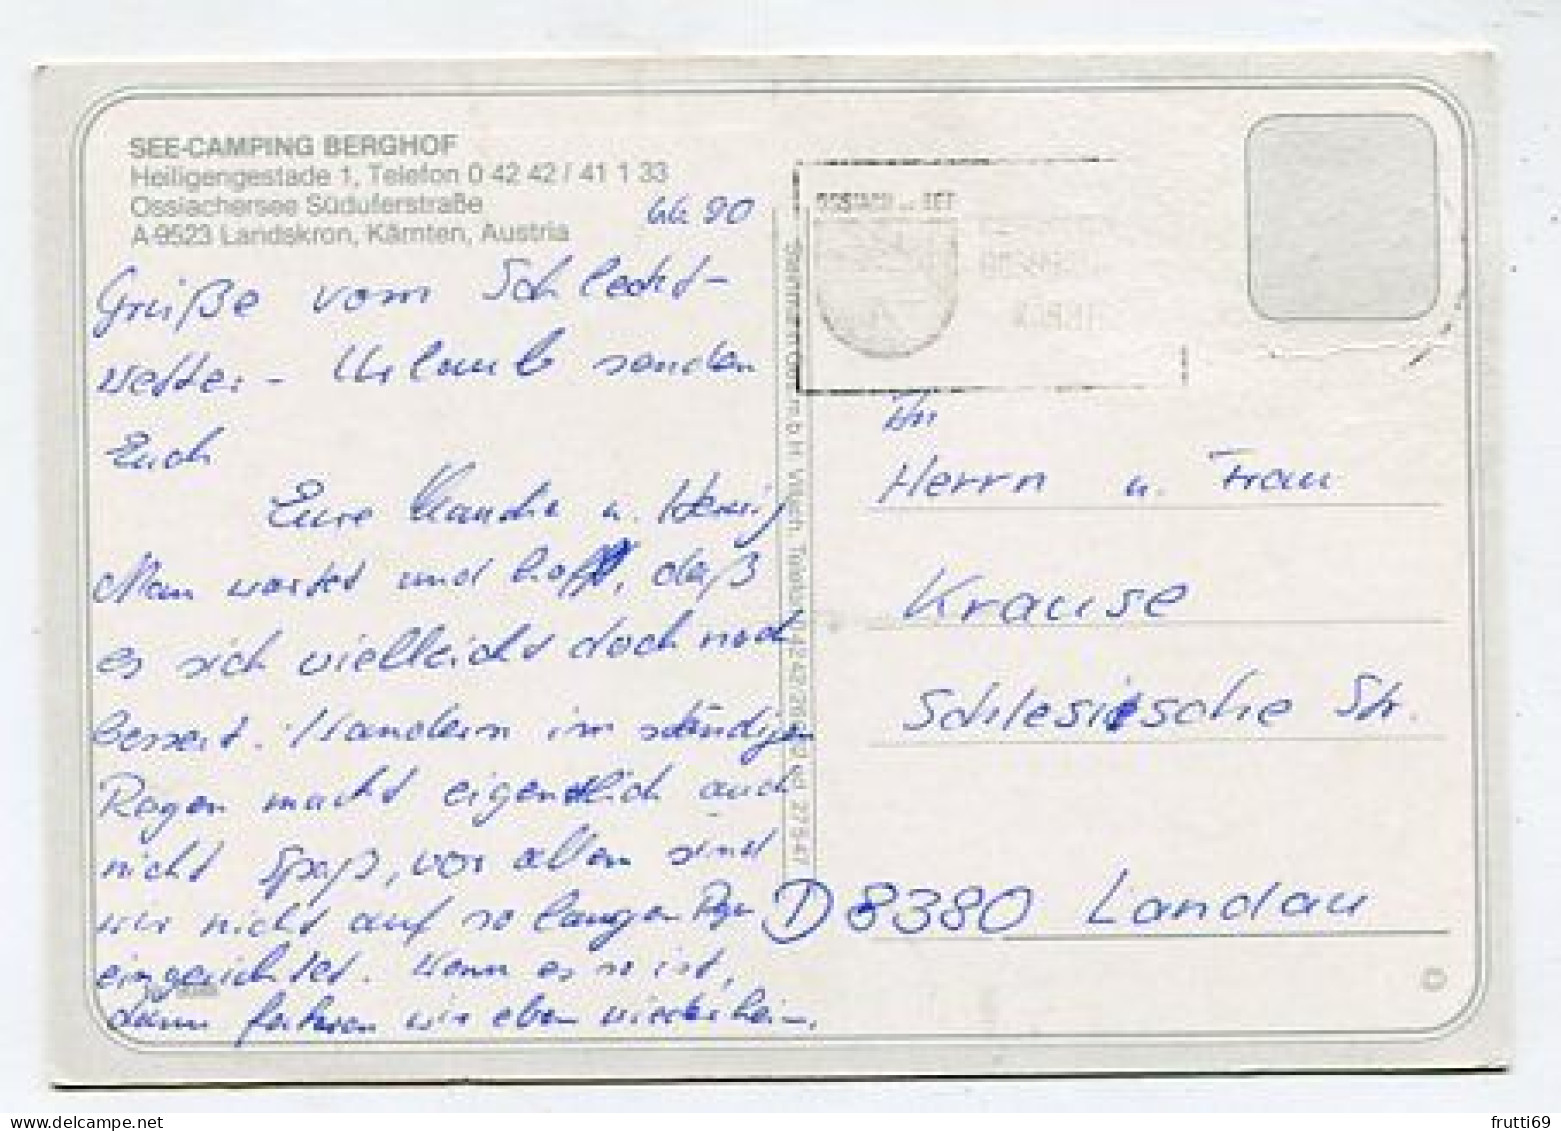 SEE-CAMPING BERGHOF
Heiligengestade 1, Telefon 0 42 42 / 41 1 33
Ossiachersee Süduferstraße
A-9523 Landskron, Kärnten, Austria
90
Grüße vom Schlecht-
wetter- Urlaub senden
Euch
Eure u.
Man wartet und hofft, daß
es sich vielleicht doch noch
bessert. Wandern im ständigen
Regen macht eigentlich auch
nicht Spaß, vor allem sind
wir nicht auf so langen Regen
eingerichtet. Wenn es so ist,
dann fahren wir eben wieder heim.
An
Herrn u. Frau
Krause
Schlesische Str.
D 8380 Landau
frutti69